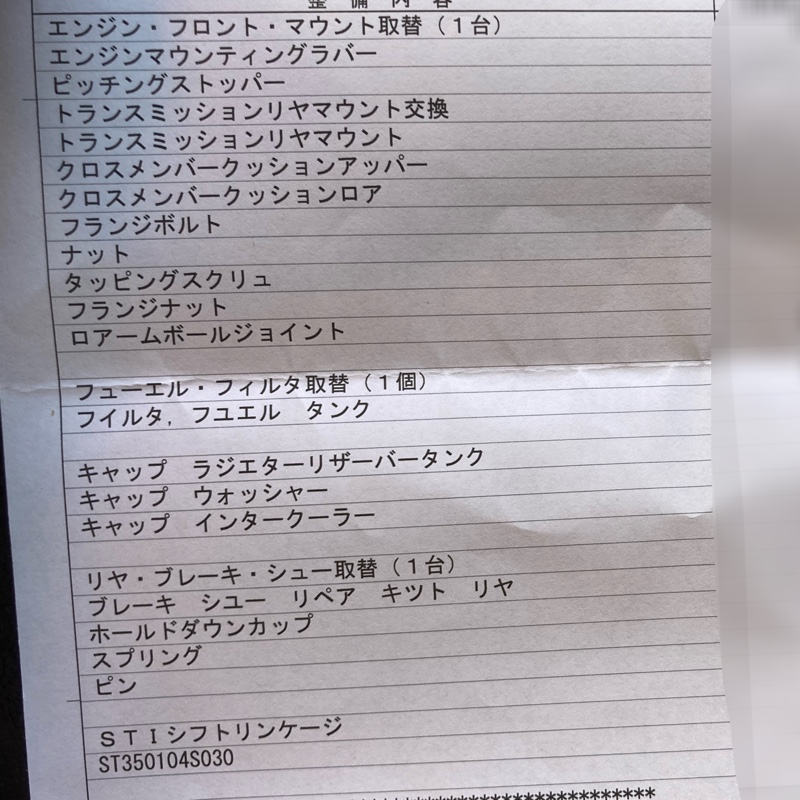 整備内容
エンジン・フロント・マウント取替（１台）
エンジンマウンティングラバー
ピッチングストッパー
トランスミッションリヤマウント交換
トランスミッションリヤマウント
クロスメンバークッションアッパー
クロスメンバークッションロア
フランジボルト
ナット
タッピングスクリュ
フランジナット
ロアームボールジョイント
フューエル・フィルタ取替（１個）
フイルタ，フユエル　タンク
キャップ　ラジエターリザーバータンク
キャップ　ウォッシャー
キャップ　インタークーラー
リヤ・ブレーキ・シュー取替（１台）
ブレーキ　シユー　リペア　キツト　リヤ
ホールドダウンカップ
スプリング
ピン
ＳＴＩシフトリンケージ
ST350104S030